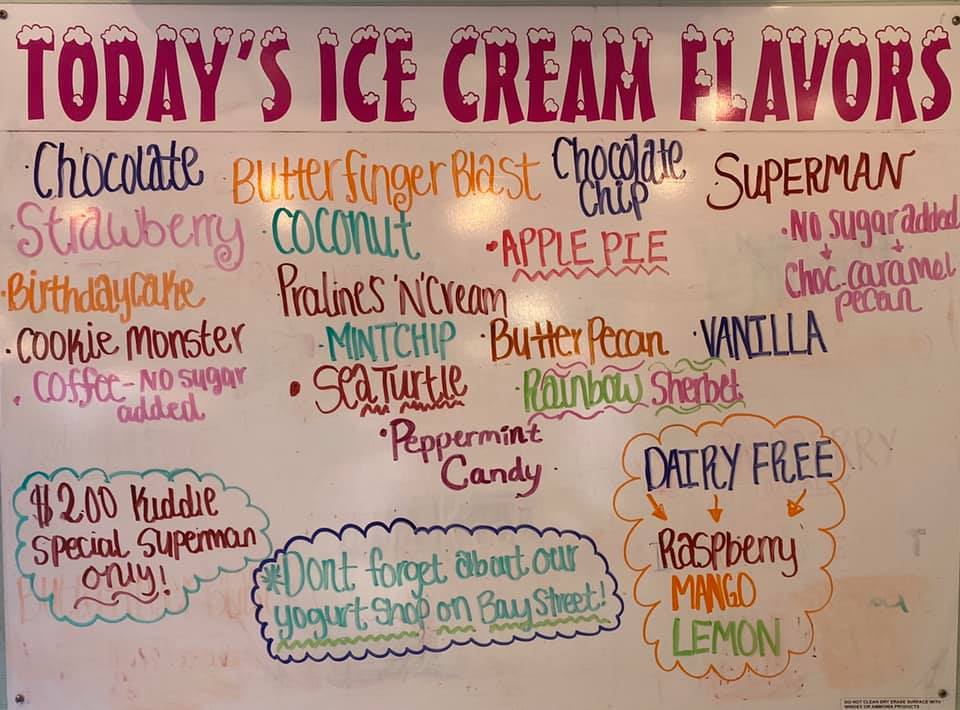 TODAY'S ICE CREAM FLAVORS
·Chocolate
·Butterfinger Blast
Chocolate
Chip
SUPERMAN
·Strawberry
·COCONUT
·APPLE PIE
·No sugar added
Choc. caramel
pecan
·Birthdaycake
Pralines 'N' Cream
·Cookie Monster
·MINTCHIP
·Butter Pecan
·VANILLA
·Coffee-No sugar
added
·Sea Turtle
·Rainbow Sherbet
·Peppermint
Candy·
DAIRY FREE
Raspberry
MANGO
LEMON
$2.00 Kiddie
special Superman
only!
*Dont forget about our
yogurt shop on Bay Street!
DO NOT CLEAN DRY ERASE SURFACE WITH
WINDEX OR AMMONIA PRODUCTS